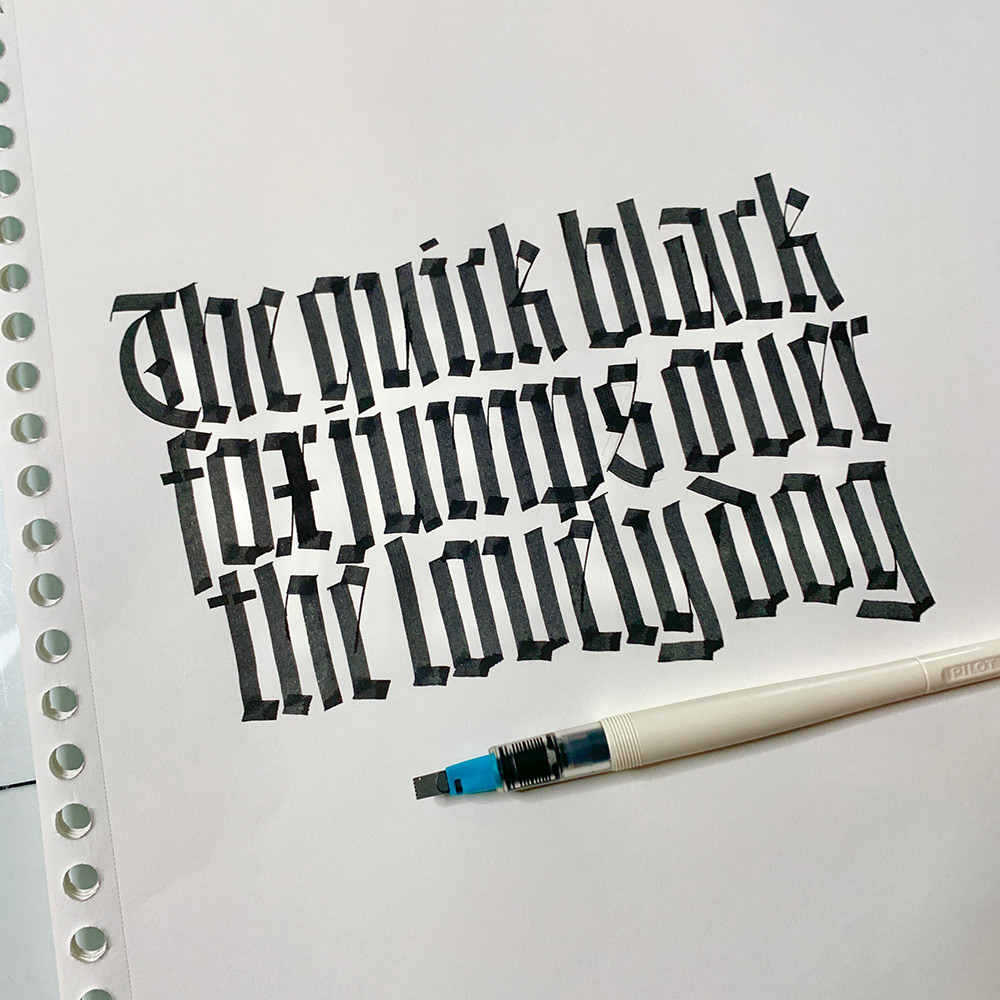 The quick black
fox jumps over
the lovely dog
PILOT